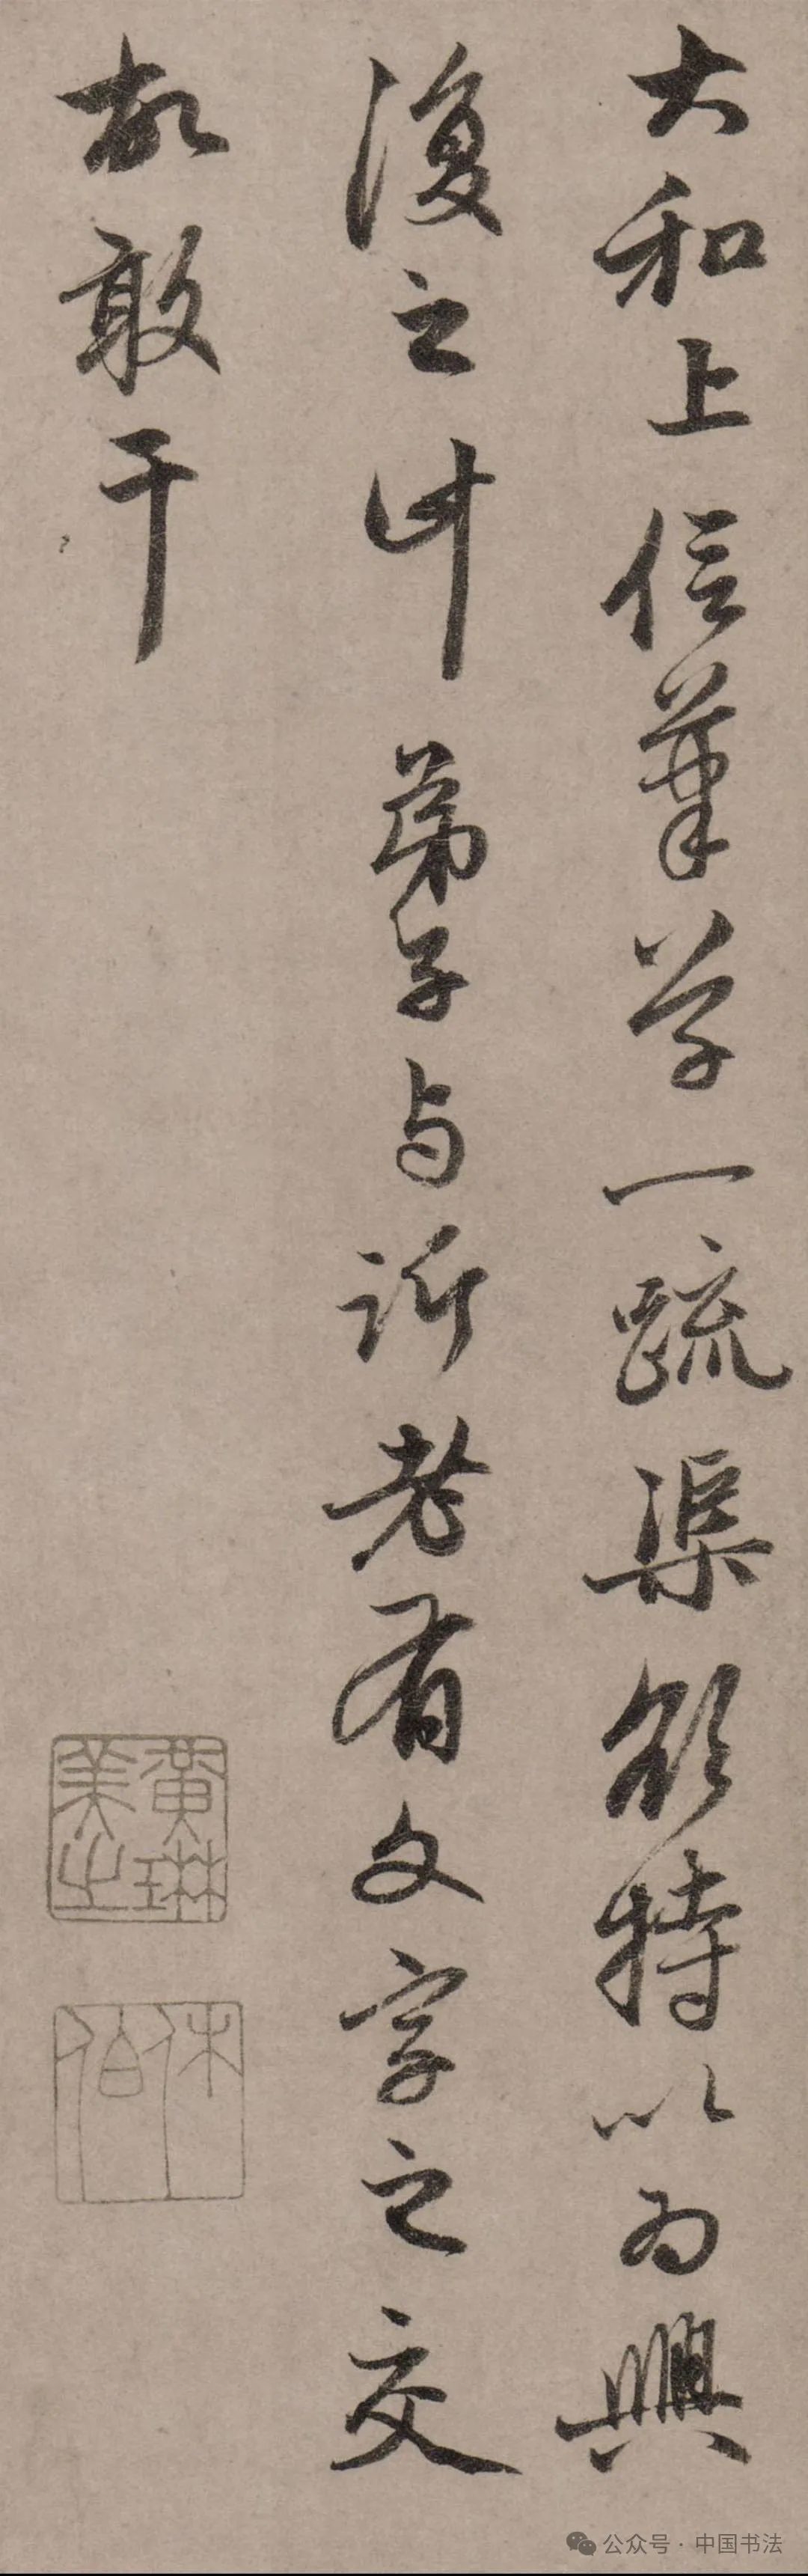 大和上信筆草一疏渠欲特以為興
復之計弟子与訢老有文字之交
故敢干
黃琳美之
休伯
公众号·中国书法